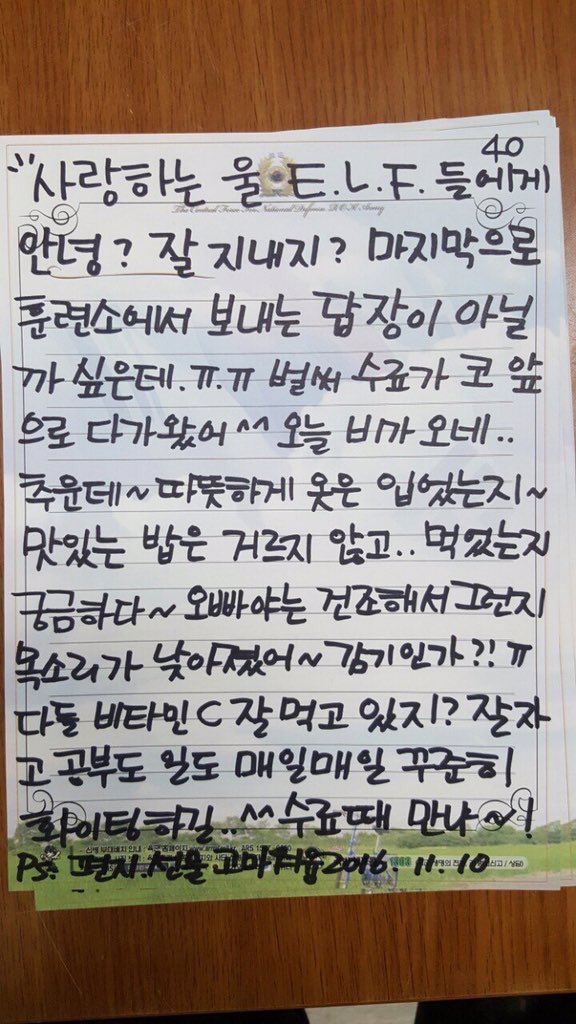 40
사랑하는 울 E.L.F. 들에게
The Central Force For National Defense, R.O.K Army
안녕? 잘 지내지? 마지막으로
훈련소에서 보내는 답장이 아닐
까 싶은데.ㅠ.ㅠ 벌써 수료가 코 앞
으로 다가왔어^^ 오늘 비가 오네..
추운데~ 따뜻하게 옷은 입었는지~
맛있는 밥은 거르지 않고.. 먹었는지
궁금하다~ 오빠야는 건조해서그런지
목소리가 낮아졌어~ 감기인가?! ㅠ
다들 비타민C 잘먹고 있지? 잘자
고 공부도 일도 매일매일 꾸준히
화이팅하길..^^ 수료때 만나~!
PS. 편지 선물 고마워용 2016. 11. 10